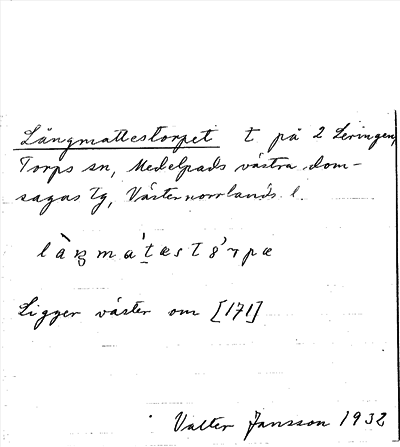 Långmattestorpet t på 2 Leringen,
Torps sn, Medelpads västra dom-
sagas tg, Västernorrlands l.
Ligger väster om [171]
Valter Jansson 1932